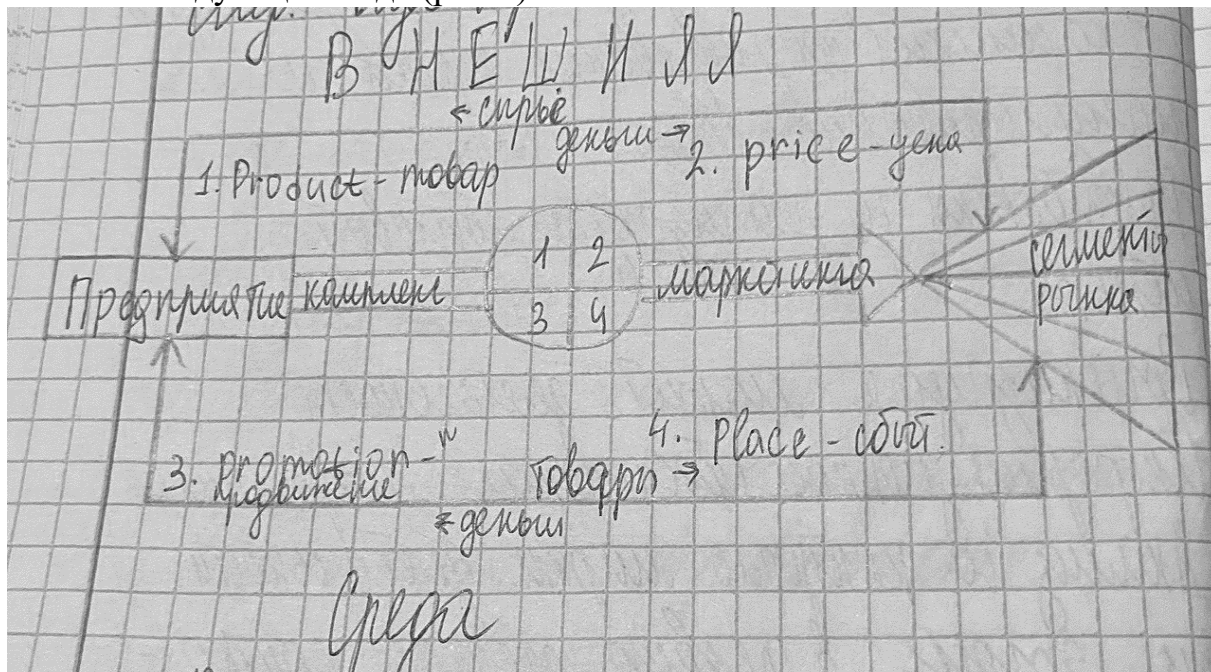 ВНЕШНЯЯ
← сырьё
деньги →
1. Product - товар
2. price - цена
Предприятие комплекс
1 2
3 4
маркетинга
сегменты
рынка
3. promotion -
продвижение
товары →
4. Place - сбыт.
← деньги
Среда